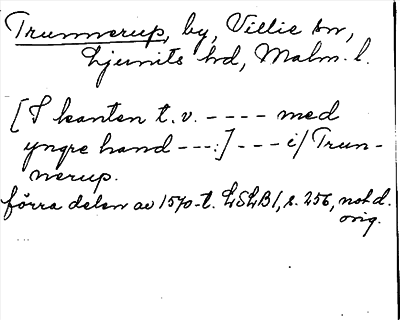 Trunnerup, by, Villie sn,
Ljunits hd, Malm. l.
[I kanten t. v. - - - - med
yngre hand - - -:] - - - i/ Trun-
nerup.
förra delen av 1570-t. LSLB1, s. 256, not d.
orig.